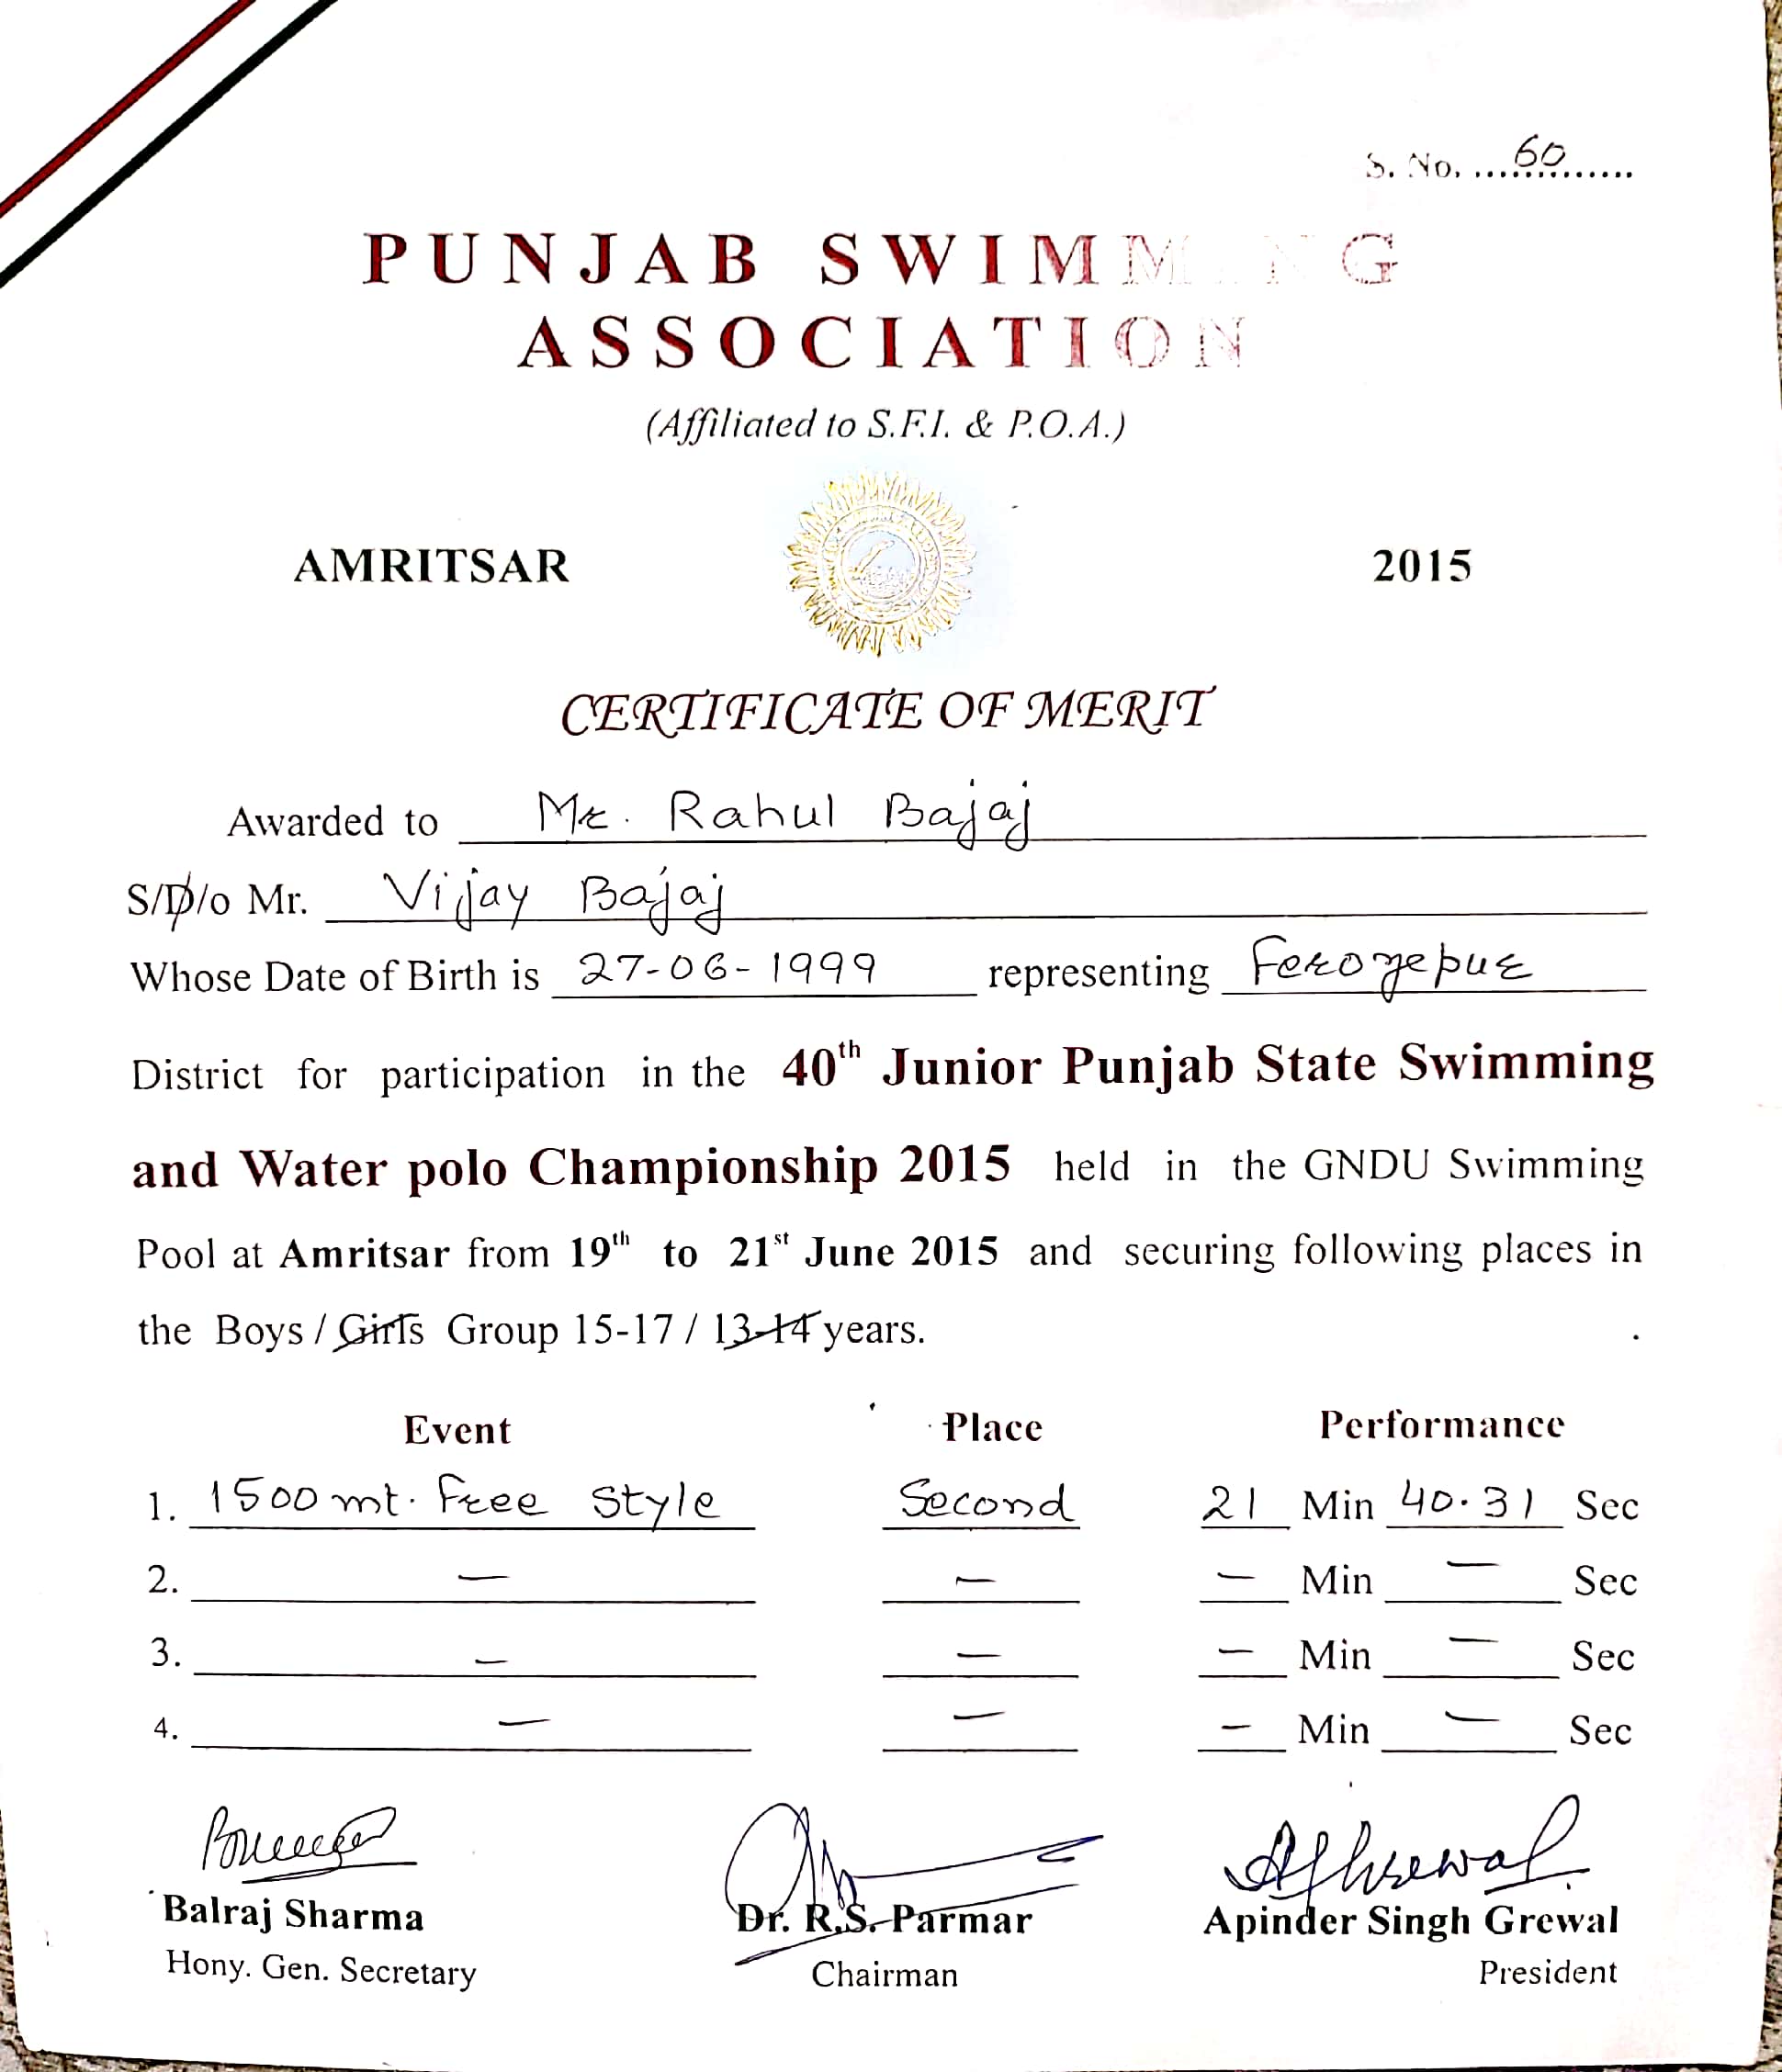 S. No. ....60........
PUNJAB SWIMMING
ASSOCIATION
(Affiliated to S.F.I. & P.O.A.)
AMRITSAR 2015
CERTIFICATE OF MERIT
Awarded to Mr. Rahul Bajaj
S/D/o Mr. Vijay Bajaj
Whose Date of Birth is 27-06-1999 representing Ferozepur
District for participation in the 40th Junior Punjab State Swimming
and Water polo Championship 2015 held in the GNDU Swimming
Pool at Amritsar from 19th to 21st June 2015 and securing following places in
the Boys / Girls Group 15-17 / 13-14 years.
Event Place Performance
1. 1500 mt. Free Style Second 21 Min 40.31 Sec
2. — — — Min — Sec
3. — — — Min — Sec
4. — — — Min — Sec
Balraj Sharma Dr. R.S. Parmar Apinder Singh Grewal
Hony. Gen. Secretary Chairman President